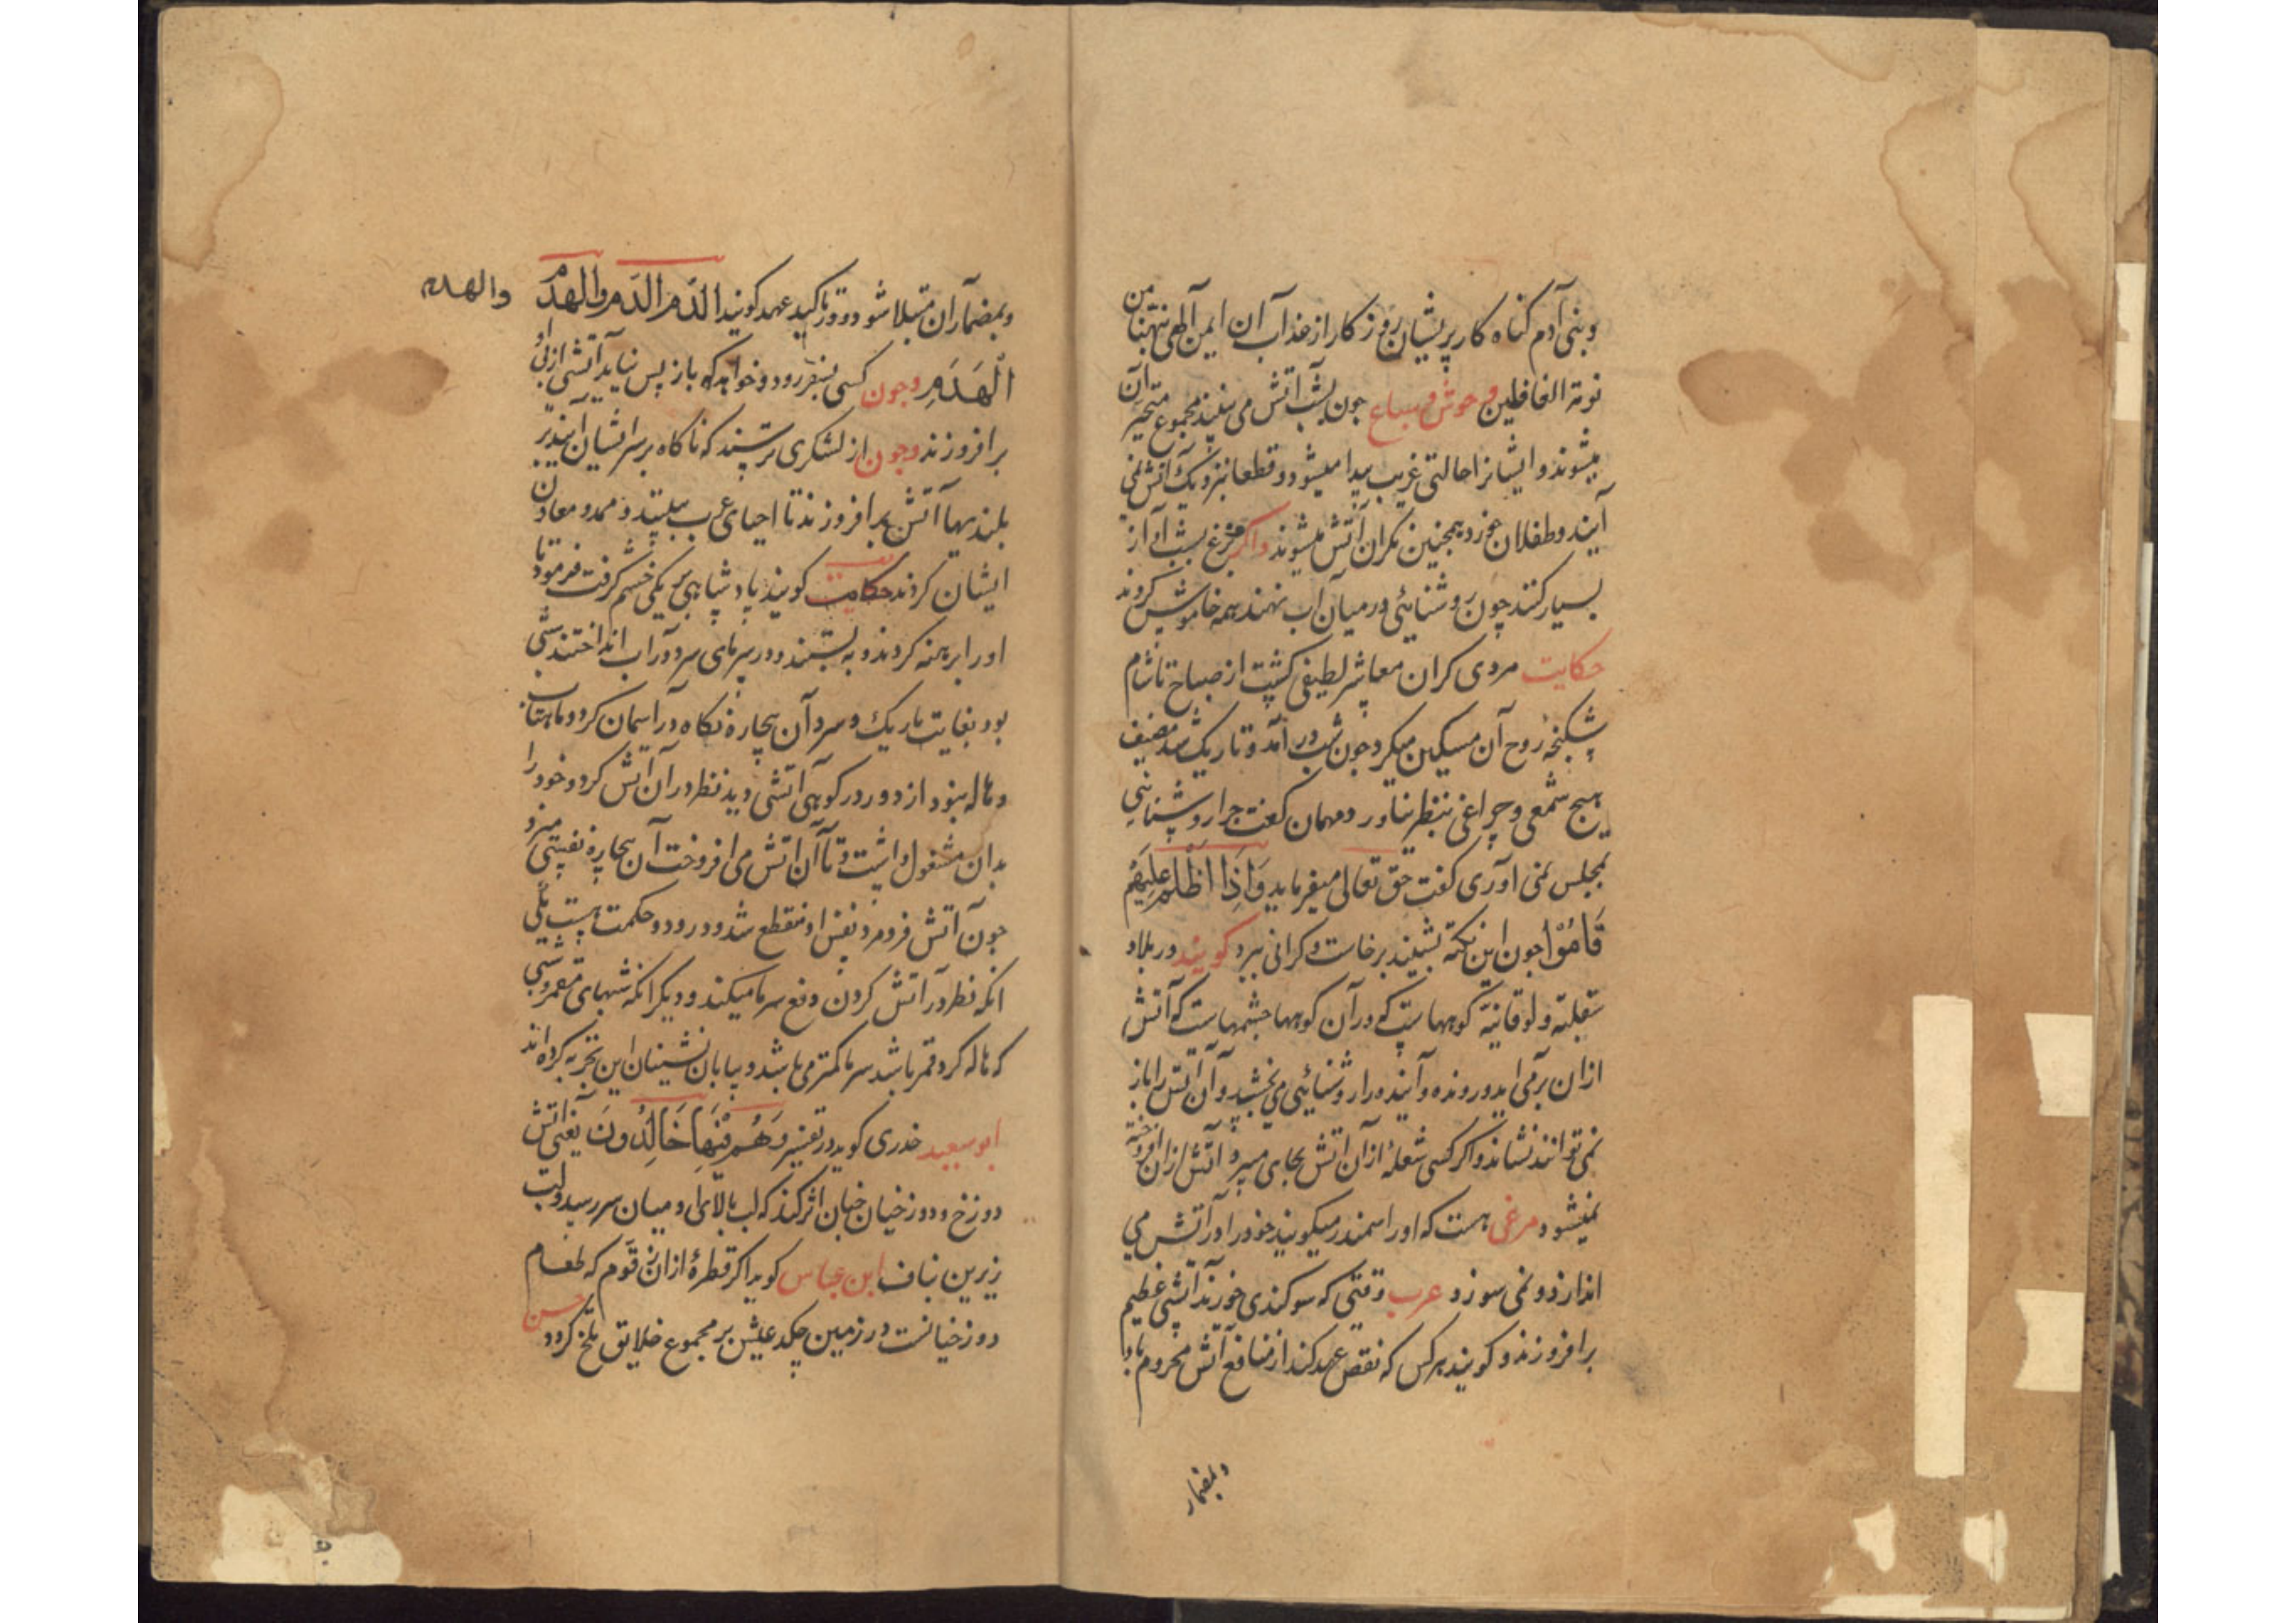 وبنی آدم کناه کار پریشان روزکار از عذاب آن ایمن الهی نبهنا من
نومة الغافلین وحوش و سباع جون بشب آتش می بینند مجموع متحیر آن
میشوند و ایشانرا حالتی غریب پیدا میشود و قطعا بنزدیک آتش نمی
آیند و طفلان خرد همجنین نکران آتش میشوند و اکر مرغ بشب آواز
بسیار کنند چون روشنائی در میان آب نهند همه خاموش کردند
حکایت مردی کران معاشر لطیفی کشت از صباح تا شام
شکنجه روح آن مسکین میکرد جون شب در آمد و تاریک شد مضیف
هیج شمعی و چراغی بنظر نیاورد مهمان کفت جرا روشنایی
بمجلس نمی اوری کفت حق تعالی میفرماید وَاِذَا اَظْلَمَ عَلَیْهِمْ
قَامُوْا جون این نکته بشنید برخاست و کرانی ببرد کویند در بلاد
سقلیه و لوقانیه کوههاست که در آن کوهها جشمهاست که آتش
ازان برمی اید و رونده و آینده را روشنائی می بخشد و آن آتش را باز
نمی توانند نشاند و اکر کسی شعلهٔ ازان آتش بجای میبرد آتش ازان افروخته
نمیشود مرغی هست که اورا سمندر میکویند خودرا در آتش می
اندازد و نمی سوزد و عرب وقتی که سوکندی خورند آتشی عظیم
برافروزند و کویند هر کس که نقض عهد کند از منافع آتش محروم باد
وبمضار
وبمضار آن مبتلا شود و در تاکید عهد کویند الدَم الدَم والهدم والهدم
الْهَدَمِ وجون کسی بسفر رود و خواهند که باز پس نیاید آتشی از پی او
برافروزند وجون از لشکری ترسند که ناکاه بر سر ایشان آیند بر
بلندیها آتش برافروزند تا احیای عرب ببینند و ممد و معاون
ایشان کردند حکایت کویند پادشاهی بر یکی خشم کرفت فرمود تا
اورا برهنه کردند و به بستند و در سرمای سرد در آب انداختند شبی
بود بغایت تاریک و سرد آن بیچاره نکاه در آسمان کرد و ماهتاب
و هاله نبود از دور در کوهی آتشی دید نظر در آن آتش کرد و خود را
بدان مشغول داشت و تا آن اتش می افروخت آن بیچاره نفسی میزد
جون آتش فرو مرد نفس او منقطع شد و در ودو حکمت هست یکی
انکه نظر در آتش کردن دفع سرما میکند و دیکر انکه شبهای مقمر و شبی
که هاله کرد قمر باشد سرما کمتر می باشد و بیابان نشینان این تجربه کرده اند
ابو سعید خدری کوید در تفسیر وَهُمْ فِیْهَا خَالِدُونَ یعنی آتش
دوزخ و دوزخیان جنان اثر کند که لب بالای او میان سر رسد و لب
زیرین بناف ابن عباس کوید اکر قطرهٔ ازان زقوم که طعام
دوزخیانست در زمین چکد عیش بر مجموع خلایق تلخ کردد حسن